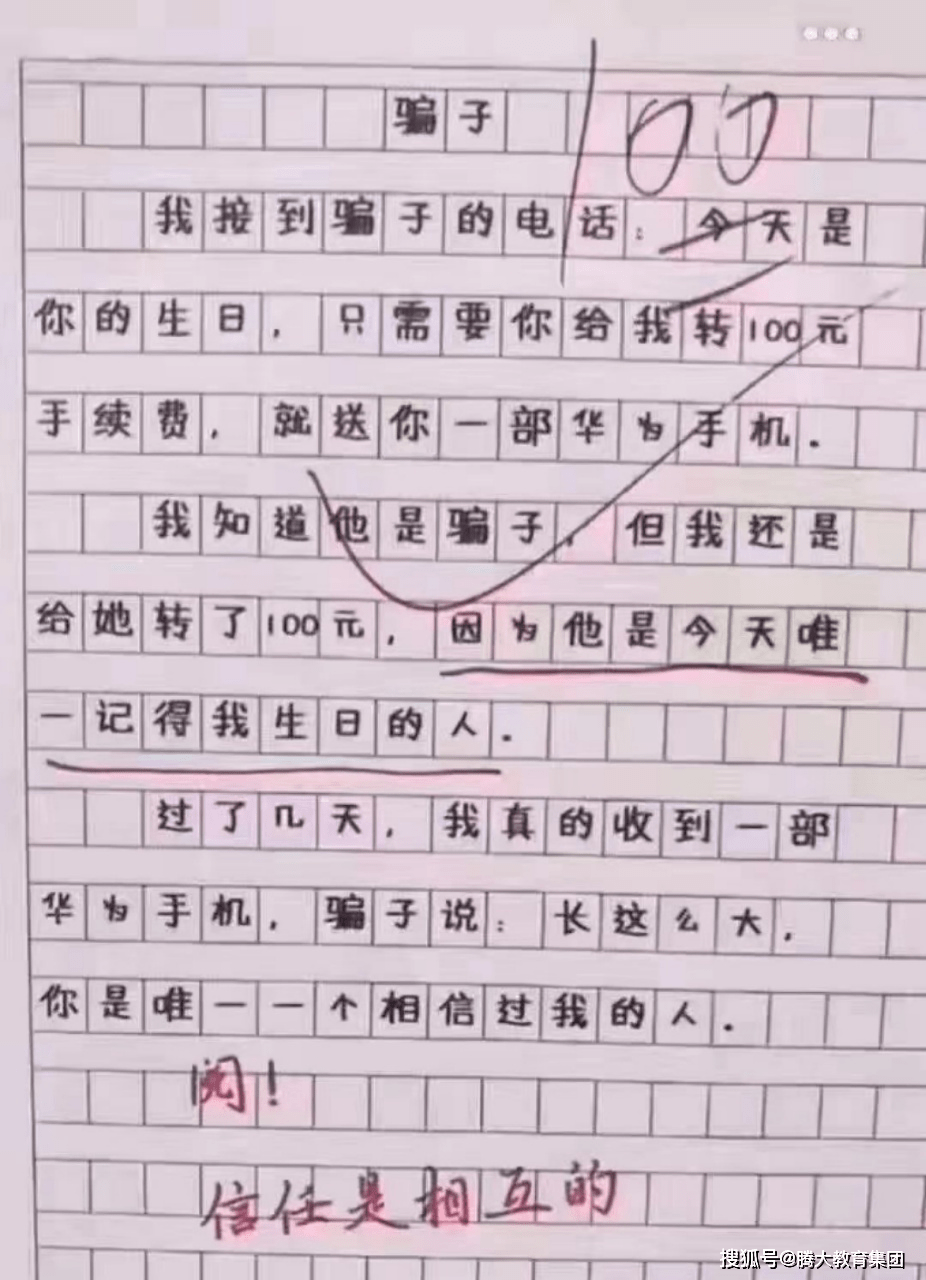 骗子
100
我接到骗子的电话：今天是
你的生日，只需要你给我转100元
手续费，就送你一部华为手机.
我知道他是骗子，但我还是
给她转了100元，因为他是今天唯
一记得我生日的人.
过了几天，我真的收到一部
华为手机，骗子说：长这么大，
你是唯一一个相信过我的人.
阅！
信任是相互的
搜狐号@腾大教育集团